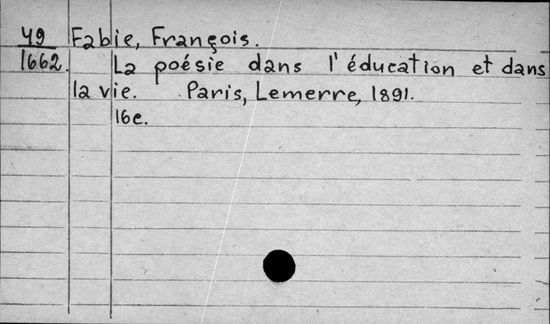 49 Fabie, François.
1662. La poésie dans l'éducation et dans
la vie. Paris, Lemerre, 1891.
16e.